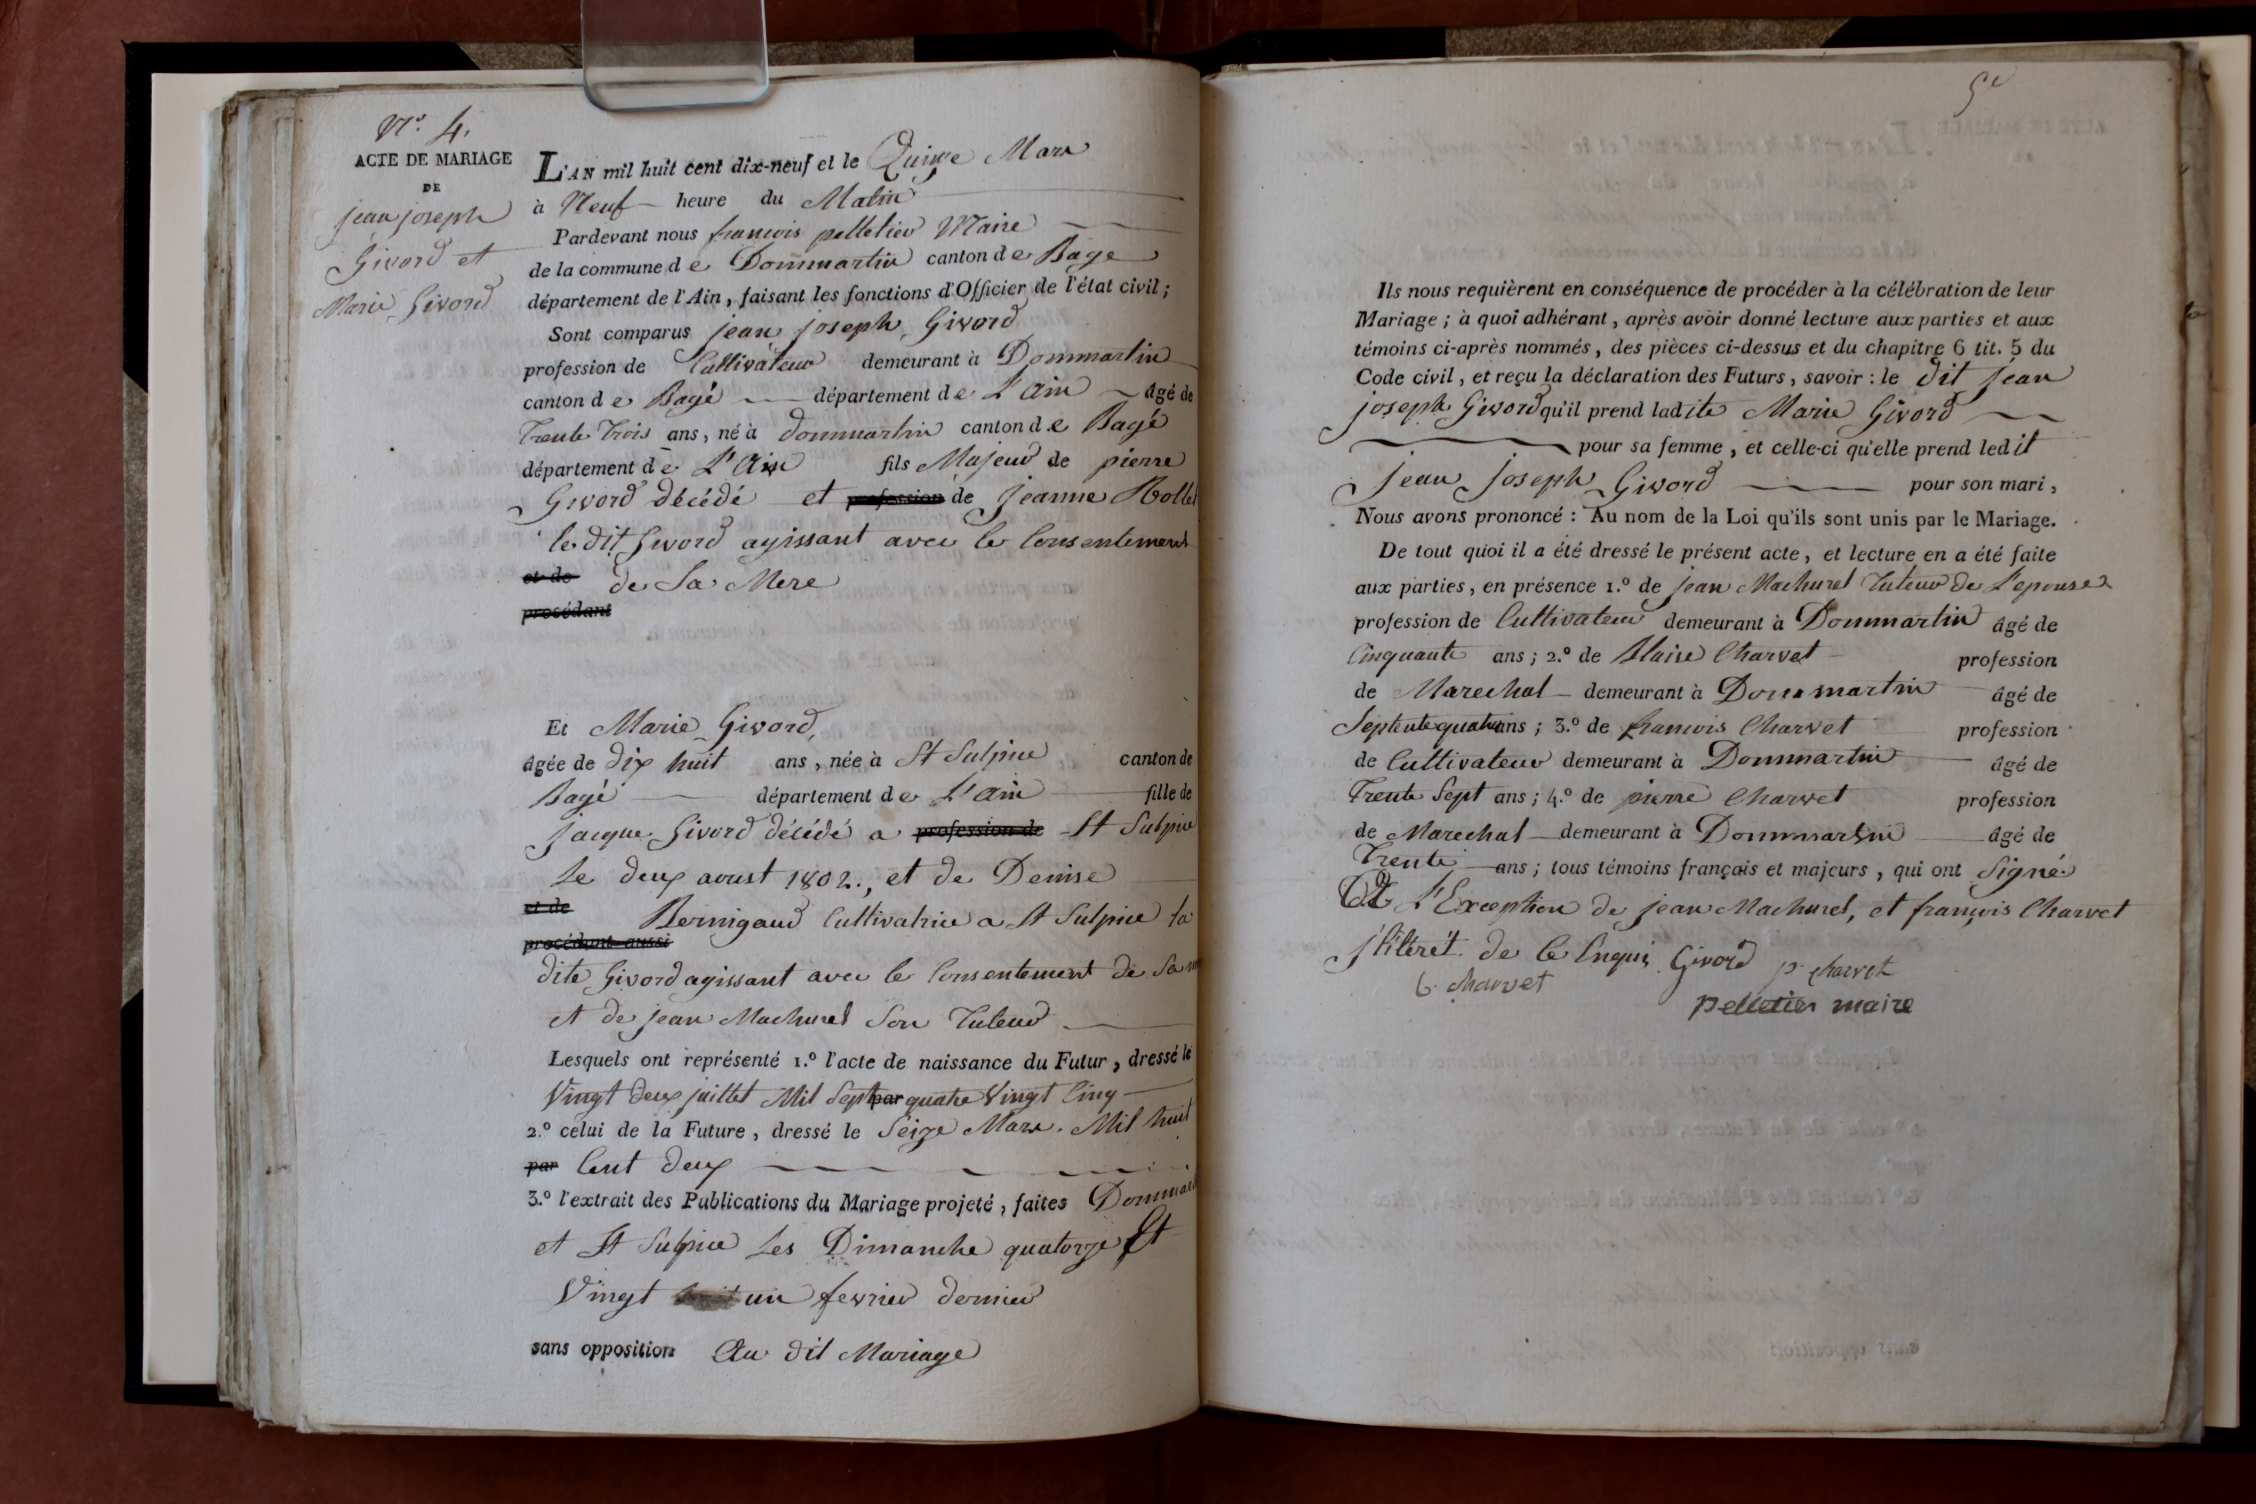 N.° 4.
ACTE DE MARIAGE
DE
jean joseph
Givord et
Marie Givord
L'AN mil huit cent dix-neuf et le Quinze Mars
à Neuf heure du Matin
Pardevant nous francois pelletier Maire
de la commune de Dommartin canton de Bage
département de l'Ain, faisant les fonctions d'Officier de l'état civil;
Sont comparus jean joseph Givord
profession de Cultivateur demeurant à Dommartin
canton de Bagé département de L'Ain âgé de
Trente Trois ans, né à dommartin canton de Bagé
département de L'Ain fils Majeur de pierre
Givord décédé et profession de Jeanne Rollet
le dit Givord agissant avec le Consentement
et de de Sa Mere
procédant
Et Marie Givord,
âgée de dix huit ans, née à St Sulpice canton de
Bagé département de L'ain fille de
jacque Givord décédé a profession de St Sulpice
Le deux aoust 1802., et de Denise
et de Bernigaud Cultivatrice a St Sulpice la
procédant aussi
dite Givord agissant avec le Consentement de Sa
et de jean Machurel Son Tuteur
Lesquels ont représenté 1.° l'acte de naissance du Futur, dressé le
Vingt deux juillet Mil Sept par quatre Vingt Cinq
2.° celui de la Future, dressé le Seize Mars. Mil huit
par Cent deux
3.° l'extrait des Publications du Mariage projeté, faites
et St Sulpice Les Dimanche quatorze Et
Vingt un fevrier dernier
sans opposition Au dit Mariage
5e
Ils nous requièrent en conséquence de procéder à la célébration de leur
Mariage; à quoi adhérant, après avoir donné lecture aux parties et aux
témoins ci-après nommés, des pièces ci-dessus et du chapitre 6 tit. 5 du
Code civil, et reçu la déclaration des Futurs, savoir: le dit jean
joseph Givord qu'il prend ladite Marie Givord
pour sa femme, et celle-ci qu'elle prend ledit
jean joseph Givord pour son mari,
Nous avons prononcé: Au nom de la Loi qu'ils sont unis par le Mariage.
De tout quoi il a été dressé le présent acte, et lecture en a été faite
aux parties, en présence 1.° de jean Machurel Tuteur de L'epouse
profession de Cultivateur demeurant à Dommartin âgé de
Cinquante ans; 2.° de Blaise Charvet profession
de Marechal demeurant à Dommartin âgé de
Septente quatre ans; 3.° de francois Charvet profession
de Cultivateur demeurant à Dommartin âgé de
Trente Sept ans; 4.° de pierre Charvet profession
de Marechal demeurant à Dommartin âgé de
Trente ans; tous témoins français et majeurs, qui ont Signé
A L'Exception de jean Machurel, et françois Charvet
jlliteret de Ce Enquis Givord p. charvet
b. charvet
pelletier maire